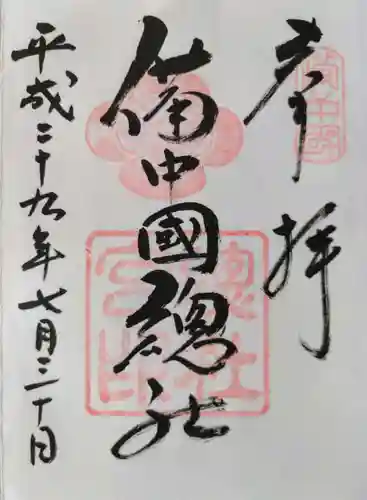 奉拝
備中國
備中國總社
總社宮印
平成二十九年七月三十日